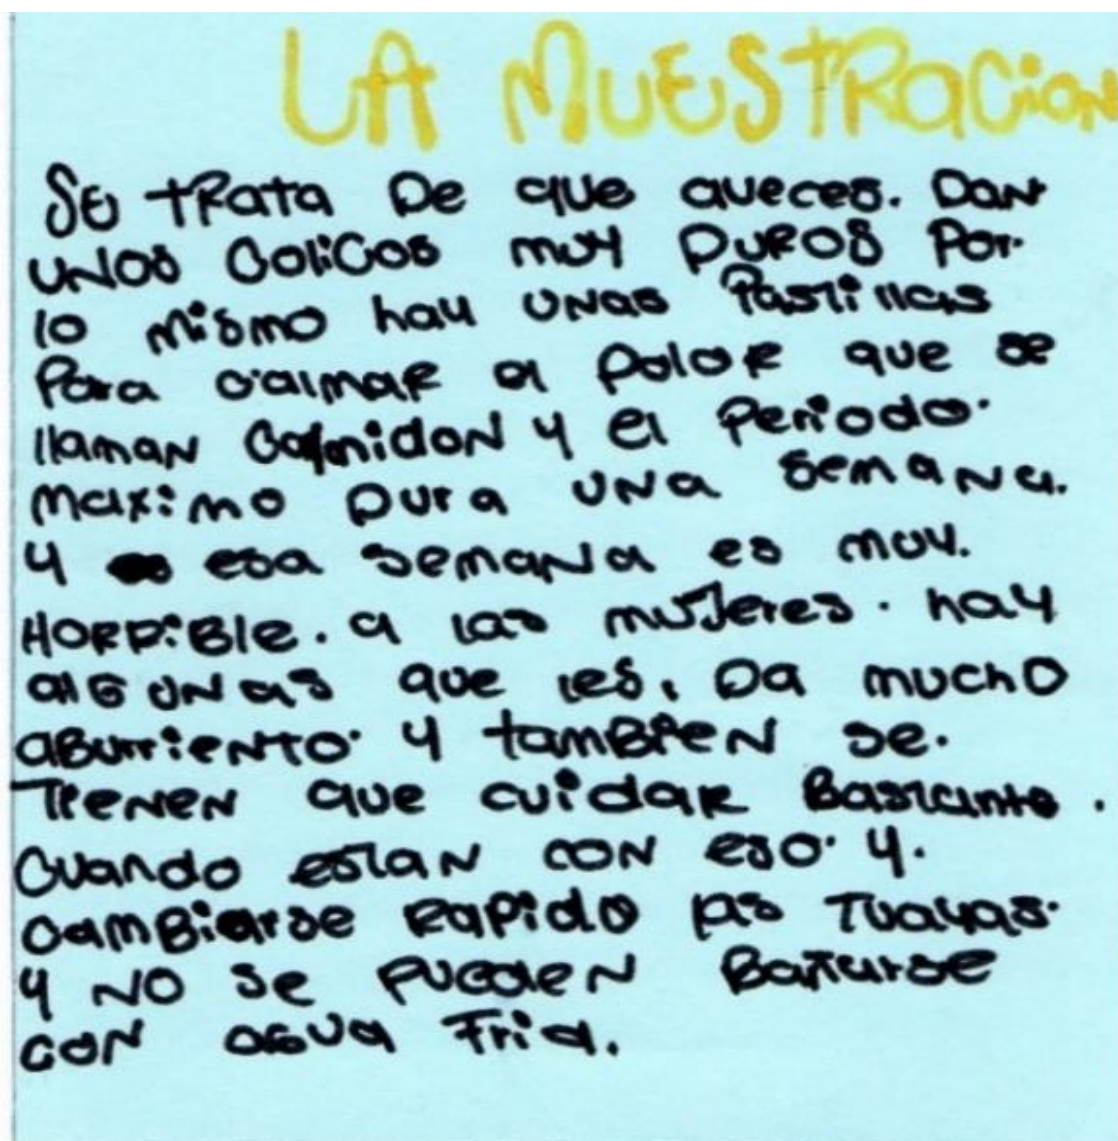 LA MUESTRACiON
Se tRata De que aveces. Dan
UNOS COliCOS muy DUROS Por.
lo mismo hay UNas Pastillas
Para calmaR el DoloR que se
llamaN CalmidoN y el Periodo.
maximo Dura UNa semaNa.
y esa semaNa es muy.
HORRiBle. a las muJeres. hay
alGUNas que les. Da muchO
aBurrieNTO. y tamBieN se.
TieNeN que cuidaR BasTante.
Cuando estaN coN eso. y.
CamBiarse RaPido las Tuayas.
y NO se PuedeN Bañarse
coN aGUa Fria.